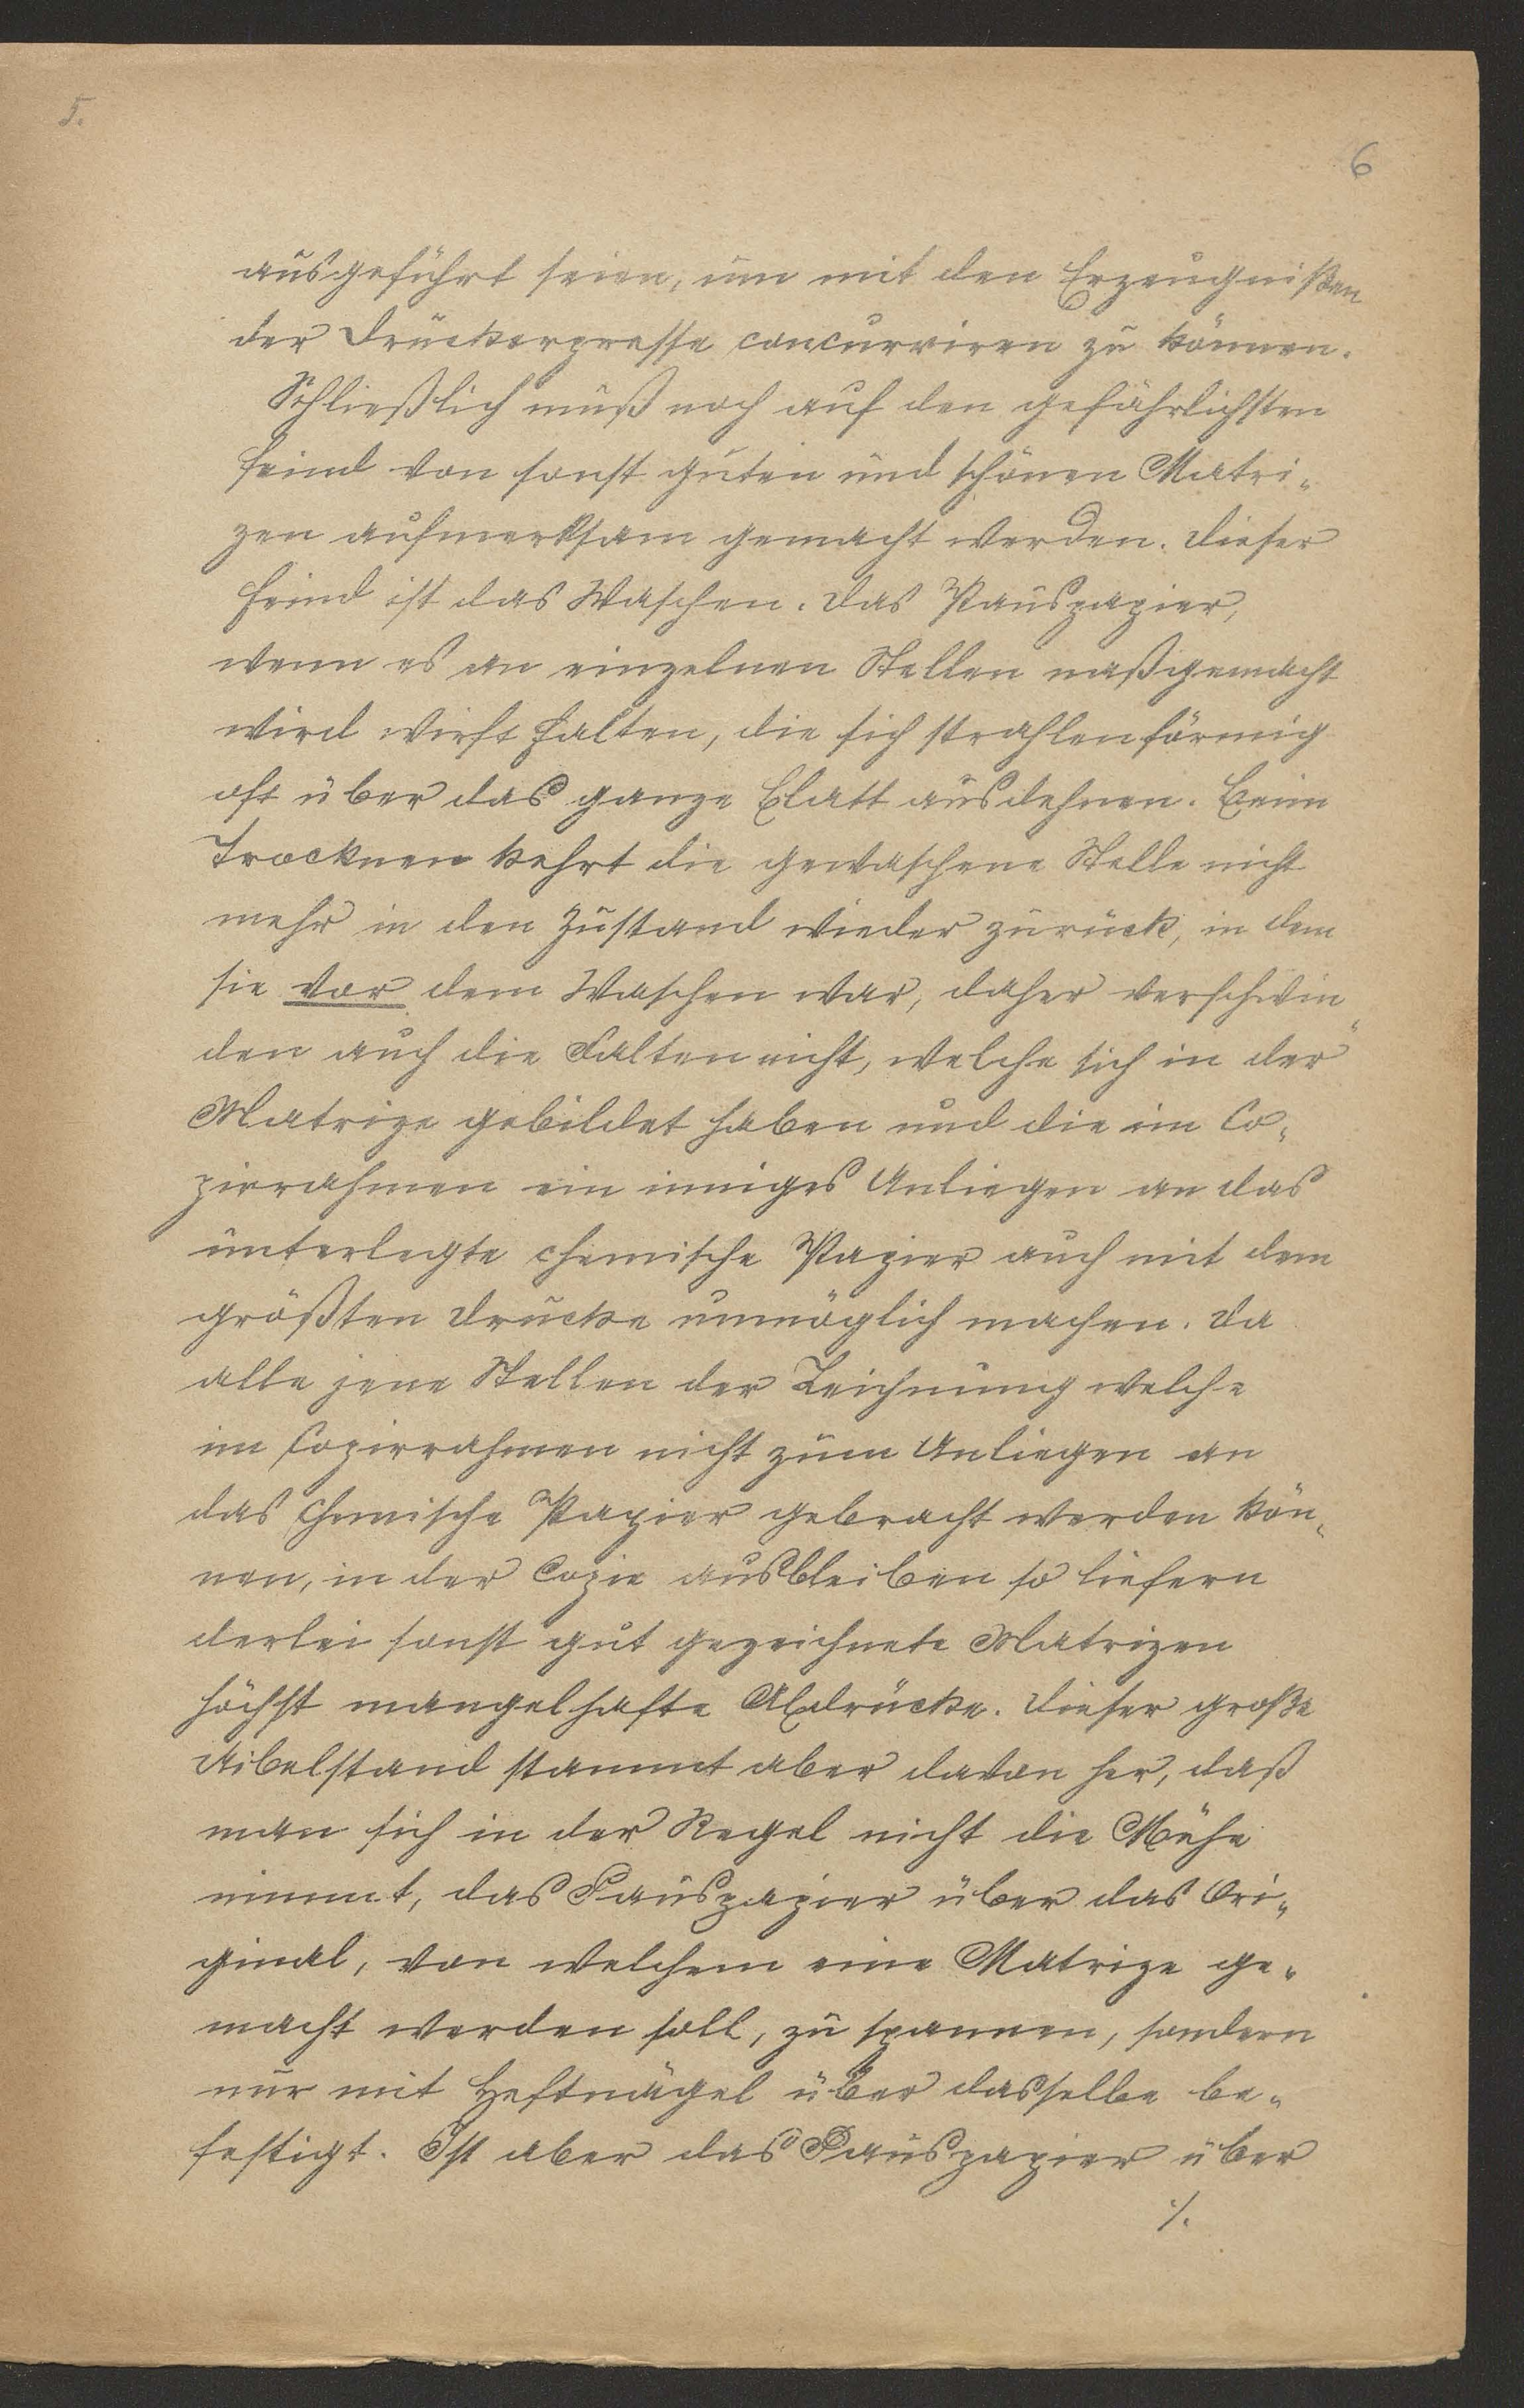 5.
6
ausgeführt seien, um mit den Erzeugnißen
der Druckerpresse concurriren zu können.
Schließlich muß noch auf den gefährlichsten
Feind von sonst guten und schönen Matri„
zen aufmerksam gemacht werden. Dieser
Feind ist das Waschen. Das Pauspapier,
wenn es an einzelnen Stellen naßgemacht
wird wirft Falten, die sich strahlenförmig
oft über das ganze Blatt ausdehnen. Beim
Trocknen kehrt die gewaschene Stelle nicht
mehr in den Zustand wieder zurück, in dem
sie vor dem Waschen war, daher verschwin„
den auch die Falten nicht, welche sich in der
Matrize gebildet haben und die im Co„
pirrahmen ein inniges Anliegen an das
unterlegte chemische Papier auch mit dem
größten Drucke unmöglich machen. Da
alle jene Stellen der Zeichnung welche
im Copirrahmen nicht zum Anliegen an
das chemische Papier gebracht werden kön„
nen, in der Copie ausbleiben so liefern
derlei sonst gut gezeichnete Matrizen
höchst mangelhafte Abdrücke. Dieser große
Uibelstand stammt aber davon her, daß
man sich in der Regel nicht die Mühe
nimmt, das Pauspapier über das Ori„
ginal, von welchem eine Matrize ge„
macht werden soll, zu spannen, sondern
nur mit Heftnägel über dasselbe be„
festigt. Ist aber das Pauspapier über
./.